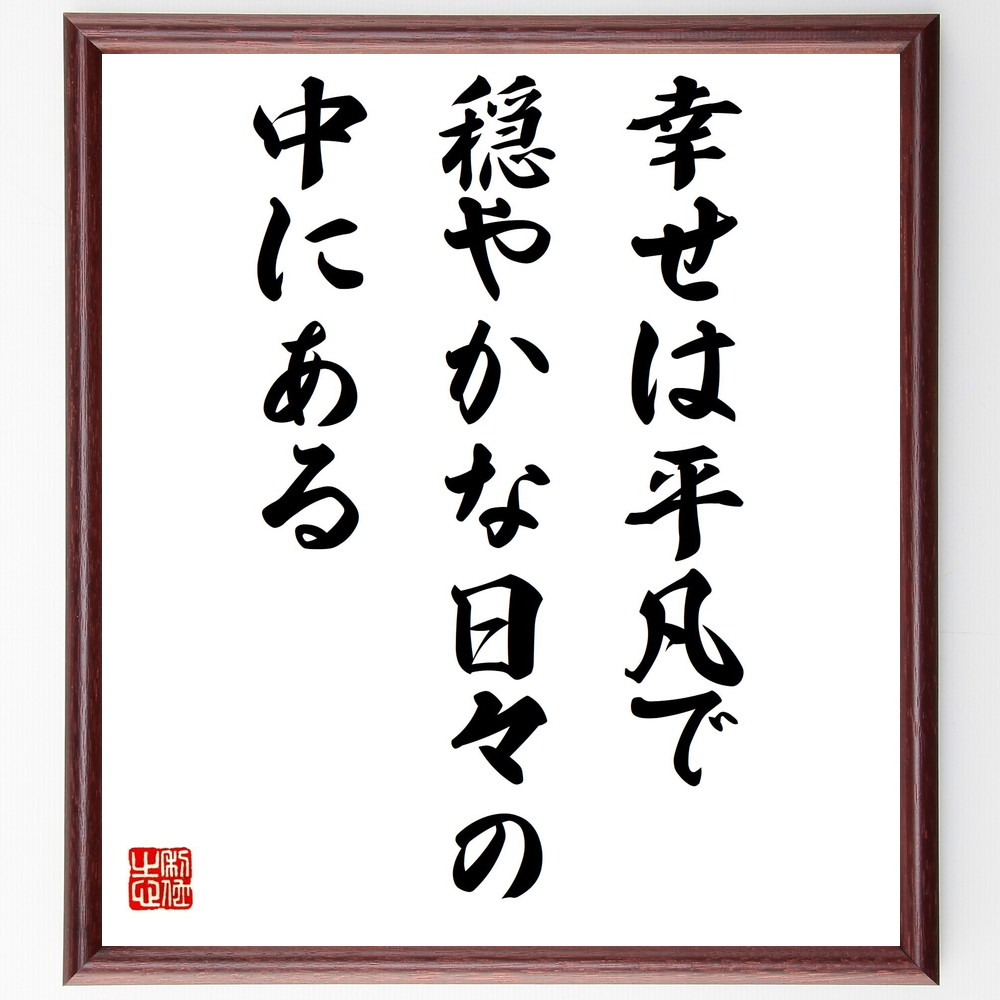 幸せは平凡で
穏やかな日々の
中にある